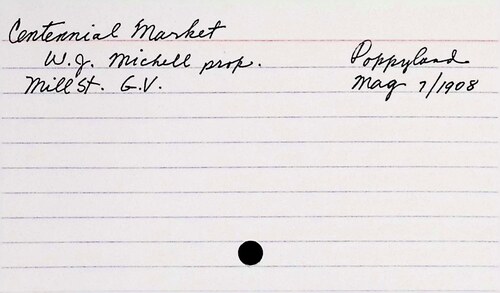 Centennial Market
W.J. Michell prop.
Poppyland
Mill St. G.V.
Mag 7/1908